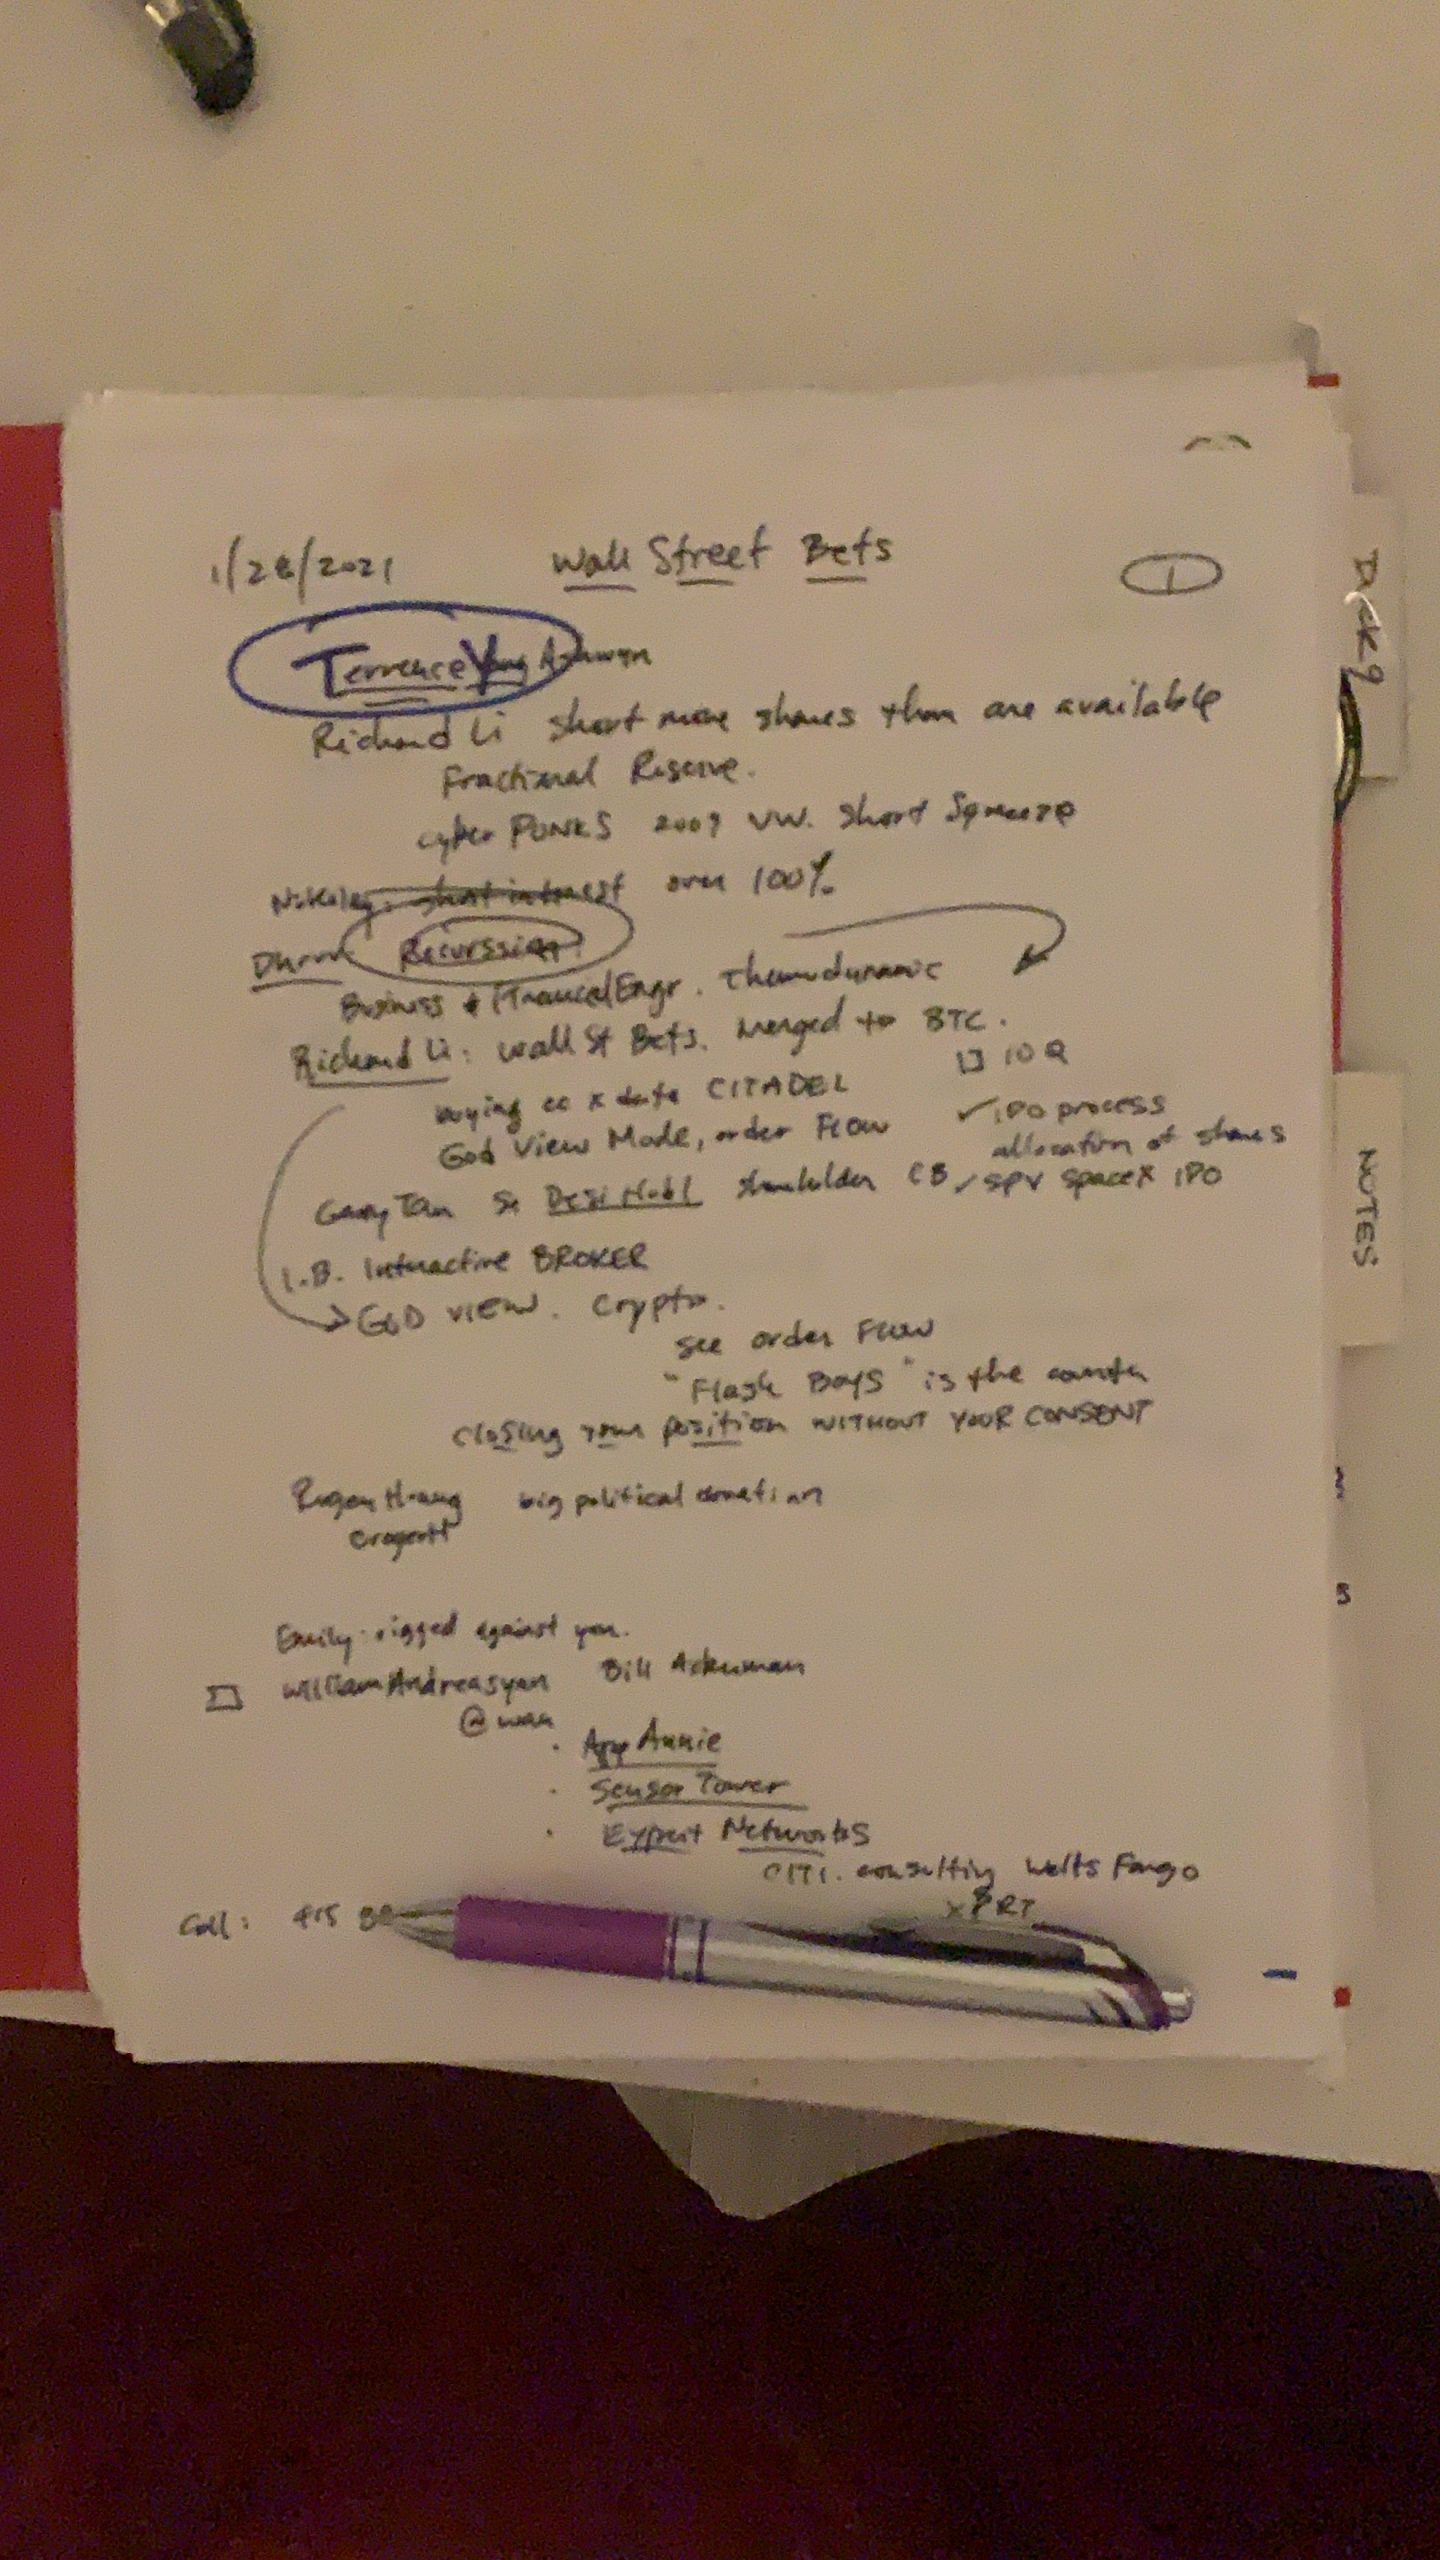 1/28/2021 Wall Street Bets 1
Terrence
Richard Li short more shares than are available
Fractional Reserve.
cyber PUNKS 2009 VW. Short Squeeze
short interest over 100%
Recurssion
Business & Financial Engr. Thermodynamic
Richard Li: Wall St Bets. Merged to BTC.
10 Q
buying data CITADEL
✓ IPO process
God View Mode, order Flow
allocation of shares
Garry Tan shareholder CB ✓ SPV SpaceX IPO
I.B. Interactive BROKER
GOD VIEW. Crypto.
see order Flow
"Flash Boys" is the
closing your position WITHOUT YOUR CONSENT
big political donation
Emily: rigged against you.
William Andreasyan Bill Ackerman
· App Annie
· Sensor Tower
· Expert Networks
CITI. consulting Wells Fargo
XPRT
Call: 415
NOTES